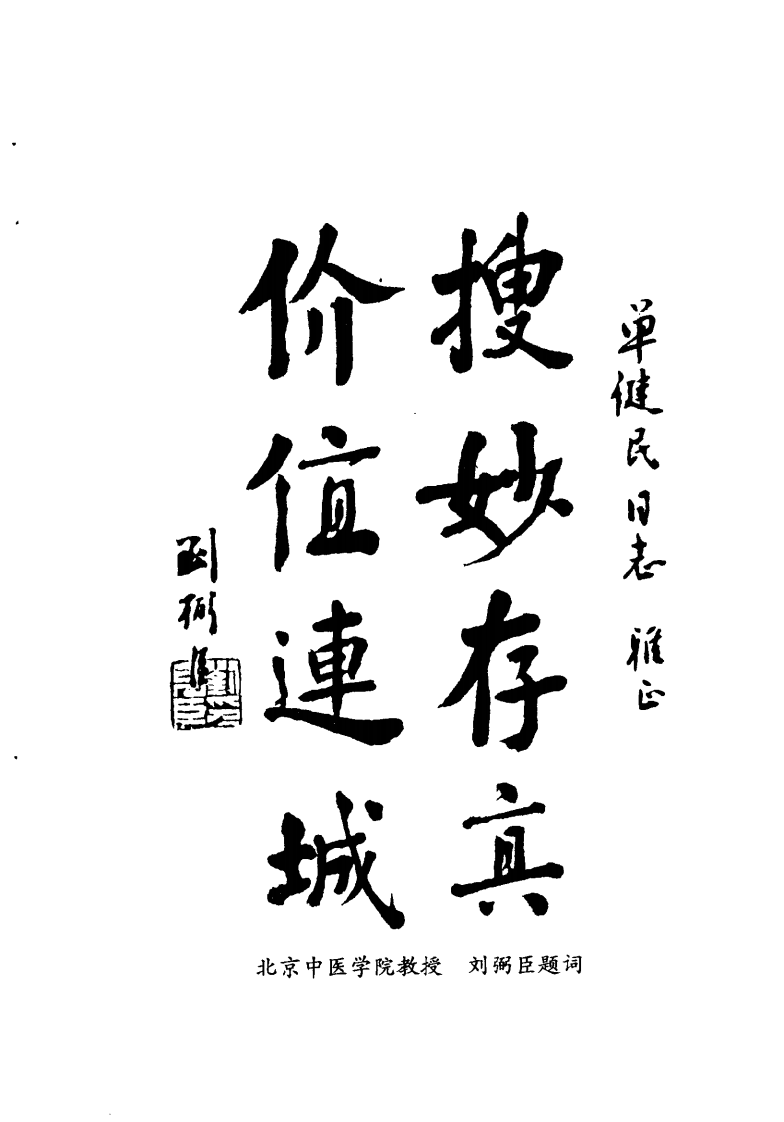 单健民同志 雅正
搜妙存真
价值連城
刘弼臣
北京中医学院教授 刘弼臣题词